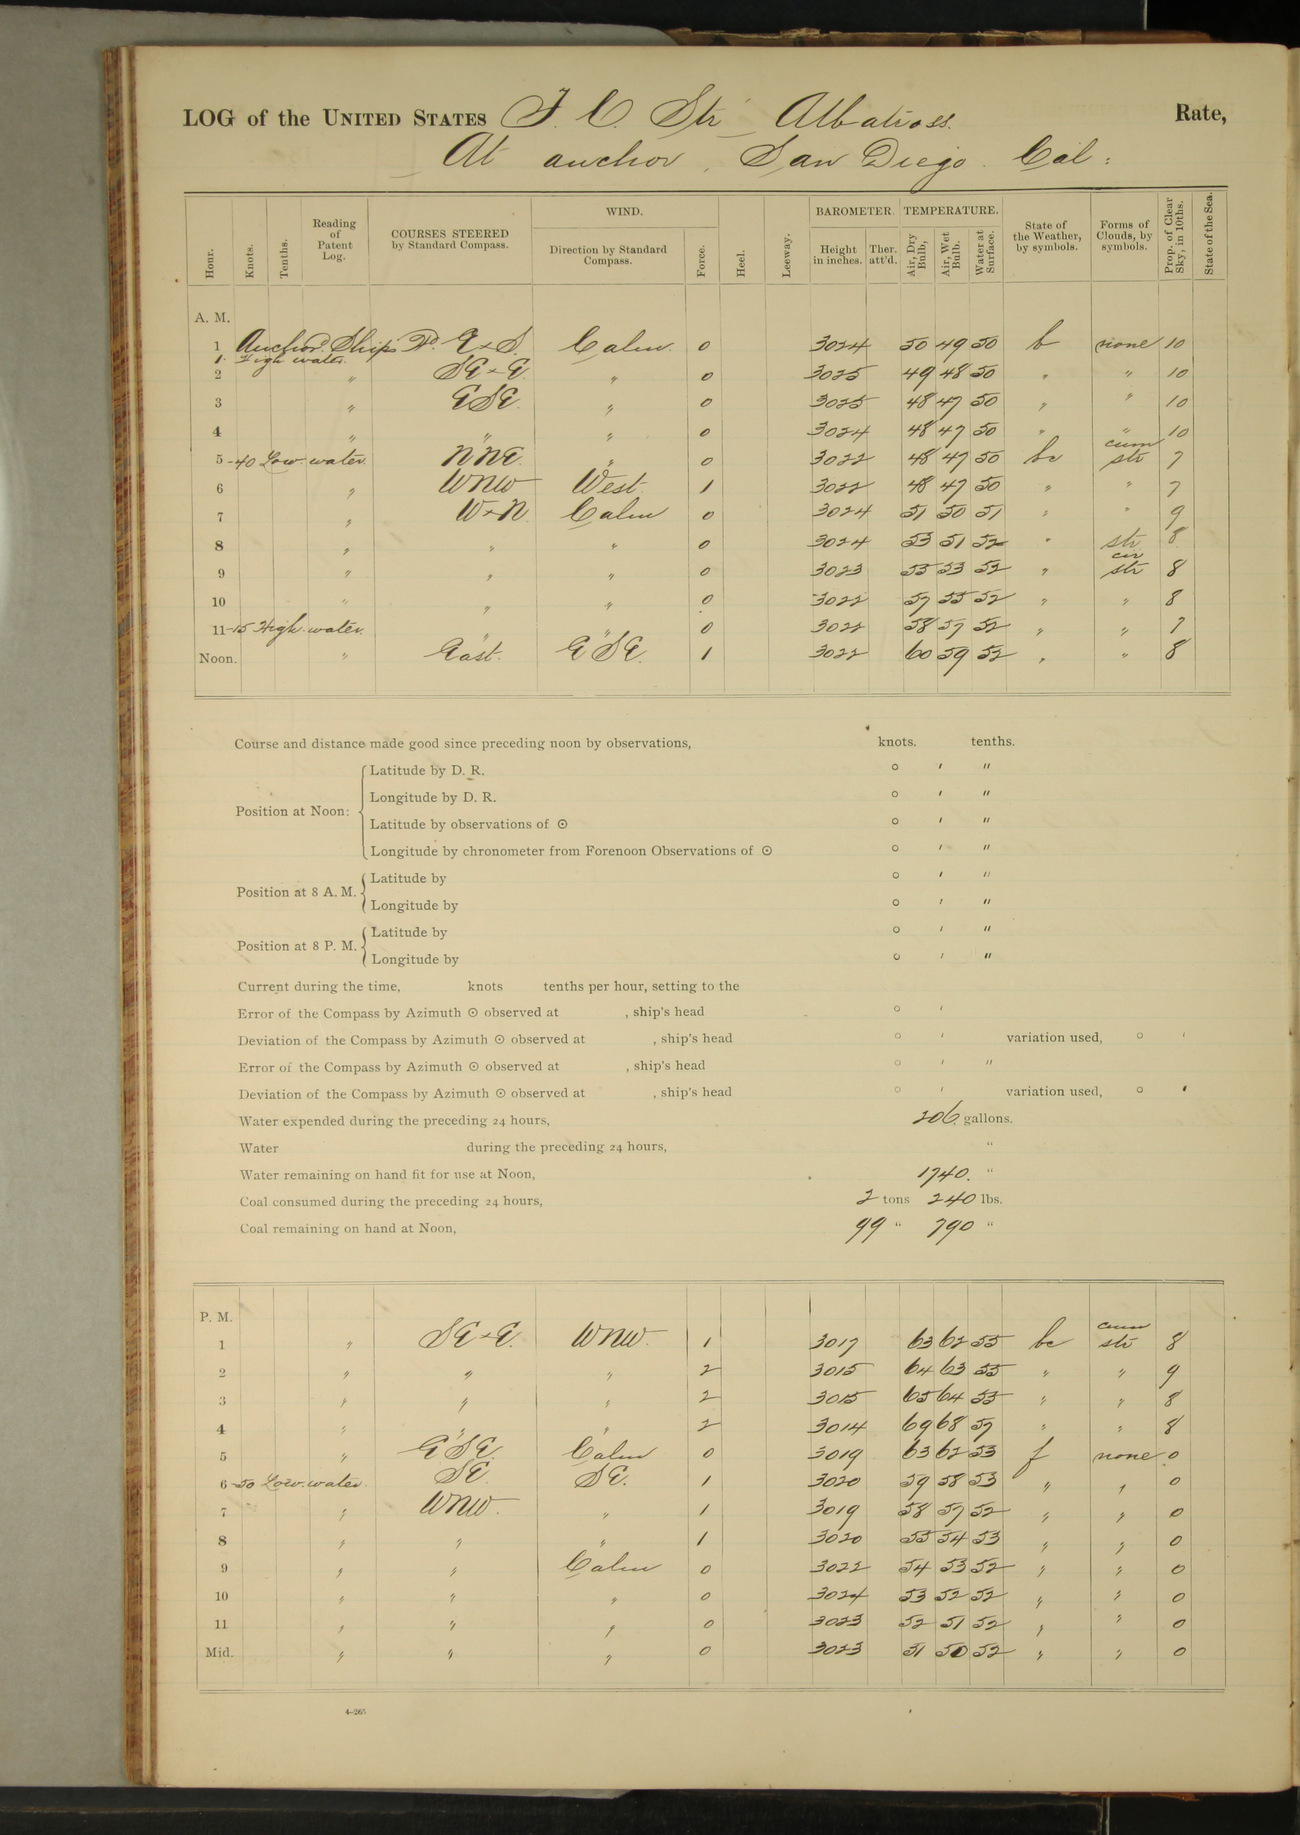 LOG of the UNITED STATES F. C. Str Albatross. Rate,
At anchor, San Diego. Cal:
Hour. Knots. Tenths. Reading of Patent Log. COURSES STEERED by Standard Compass. WIND. Direction by Standard Compass. Force. Heel. Leeway. BAROMETER. Height in inches. Ther. att'd. TEMPERATURE. Air, Dry Bulb, Air, Wet Bulb. Water at Surface. State of the Weather, by symbols. Forms of Clouds, by symbols. Prop. of Clear Sky, in 10ths. State of the Sea.
A. M.
1 Anchor. Ship's Hd. E x S. Calm. 0 3024 50 49 50 b none 10
1. High water.
2 " SE x E. " 0 3025 49 48 50 " " 10
3 " ESE " 0 3025 48 47 50 " " 10
4 " " " 0 3024 48 47 50 " " 10
5 -40 Low water. NNE. " 0 3022 48 47 50 bc cum str 7
6 " WNW West. 1 3022 48 47 50 " " 7
7 " W x N. Calm 0 3024 51 50 51 " " 9
8 " " " 0 3024 53 51 52 " str 8
9 " " " 0 3023 55 53 52 " cir str 8
10 " " " 0 3022 57 55 52 " " 8
11 -15 High water. " " 0 3022 58 57 52 " " 7
Noon. " East. ESE. 1 3022 60 59 52 " " 8
Course and distance made good since preceding noon by observations, knots. tenths.
Position at Noon: Latitude by D. R. ° ′ ″
Longitude by D. R. ° ′ ″
Latitude by observations of ☉ ° ′ ″
Longitude by chronometer from Forenoon Observations of ☉ ° ′ ″
Position at 8 A. M. Latitude by ° ′ ″
Longitude by ° ′ ″
Position at 8 P. M. Latitude by ° ′ ″
Longitude by ° ′ ″
Current during the time, knots tenths per hour, setting to the
Error of the Compass by Azimuth ☉ observed at , ship's head ° ′
Deviation of the Compass by Azimuth ☉ observed at , ship's head ° ′ variation used, ° ′
Error of the Compass by Azimuth ☉ observed at , ship's head ° ′ ″
Deviation of the Compass by Azimuth ☉ observed at , ship's head ° ′ variation used, ° ′
Water expended during the preceding 24 hours, 206. gallons.
Water during the preceding 24 hours, "
Water remaining on hand fit for use at Noon, 1740. "
Coal consumed during the preceding 24 hours, 2 tons 240 lbs.
Coal remaining on hand at Noon, 99 " 790 "
P. M.
1 " SE x E. WNW. 1 3017 63 62 55 bc cum str 8
2 " " " 2 3015 64 63 55 " " 9
3 " " " 2 3015 65 64 55 " " 8
4 " " " 2 3014 69 68 57 " " 8
5 " ESE. Calm 0 3019 63 62 53 f none 0
6 -50 Low water. SE. SE. 1 3020 59 58 53 " " 0
7 " WNW. " 1 3019 58 57 52 " " 0
8 " " " 1 3020 55 54 53 " " 0
9 " " Calm 0 3022 54 53 52 " " 0
10 " " " 0 3024 53 52 52 " " 0
11 " " " 0 3023 52 51 52 " " 0
Mid. " " " 0 3023 51 50 52 " " 0
4-265